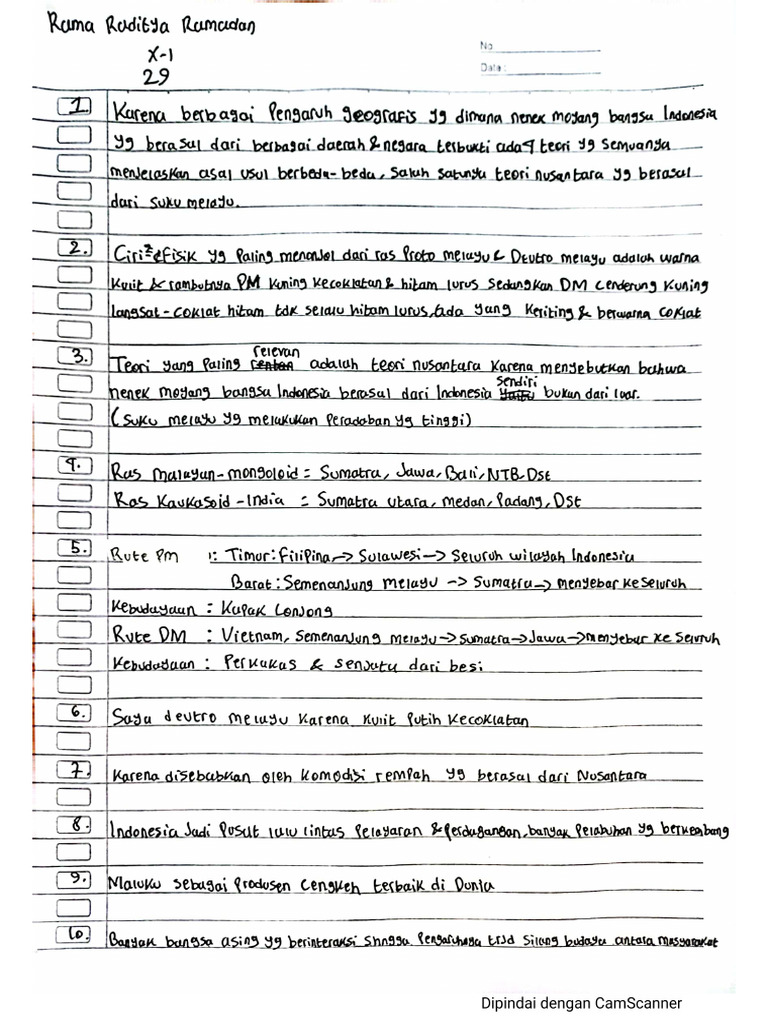 Rama Raditya Ramadan
X-1
29
No
Date:
1. Karena berbagai Pengaruh geografis yg dimana nenek moyang bangsa Indonesia
yg berasal dari berbagai daerah & negara terbukti ada 4 teori yg semuanya
menjelaskan asal usul berbeda-beda, salah satunya teori nusantara yg berasal
dari suku melayu.
2. Ciri² fisik yg Paling menonjol dari ras Proto melayu & Deutro melayu adalah warna
Kulit & rambutnya PM Kuning Kecoklatan & hitam lurus sedangkan DM Cenderung Kuning
langsat-coklat hitam tdk selalu hitam lurus, ada yang Keriting & berwarna coklat
relevan
3. Teori yang Paling adalah teori nusantara Karena menyebutkan bahwa
sendiri
nenek moyang bangsa Indonesia berasal dari Indonesia yaitu bukan dari luar.
(Suku melayu yg melakukan Peradaban yg tinggi)
4. Ras malayan-mongoloid = Sumatra, Jawa, Bali, NTB, Dst
Ras Kaukasoid-India = Sumatra utara, medan, Padang, Dst
5. Rute PM : Timur : Filipina → Sulawesi → Seluruh wilayah Indonesia
Barat : Semenanjung melayu → Sumatra → menyebar ke seluruh
Kebudayaan : Kapak Lonjong
Rute DM : Vietnam, Semenanjung melayu → Sumatra → Jawa → menyebar ke seluruh
Kebudayaan : Perkakas & senjata dari besi
6. Saya deutro melayu Karena Kulit Putih Kecoklatan
7. Karena disebabkan oleh Komodisi rempah yg berasal dari Nusantara
8. Indonesia Jadi Pusat lalu lintas Pelayaran & Perdagangan, banyak Pelabuhan yg berkembang
9. Maluku sebagai Produsen Cengkeh terbaik di Dunia
10. Banyak bangsa asing yg berinteraksi Shngga Pengaruhnya trjd Silang budaya antara masyarakat
Dipindai dengan CamScanner